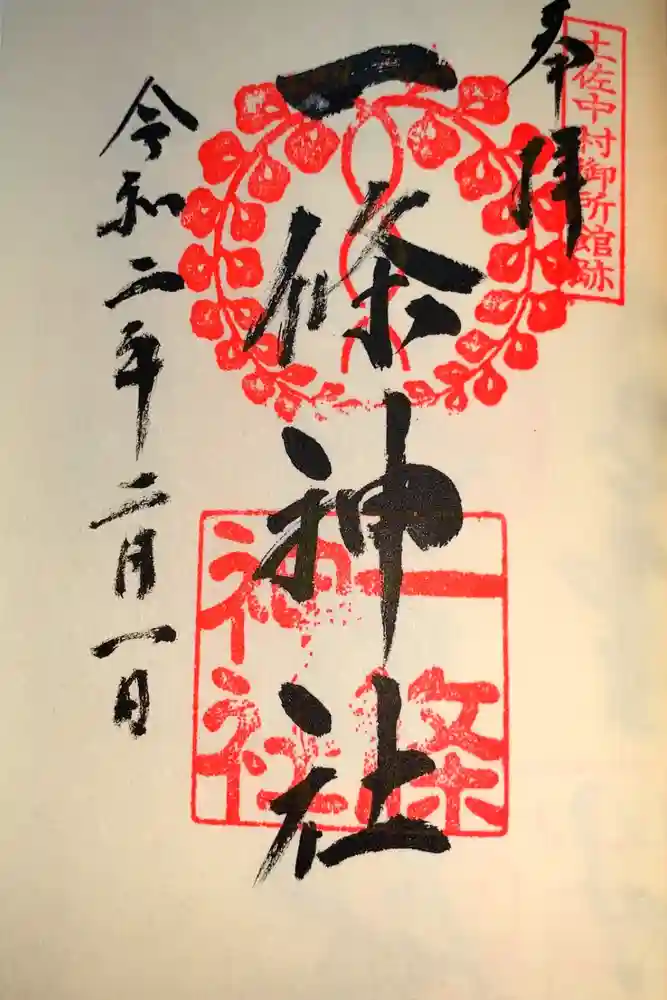 奉拝
土佐中村御所館跡
一條神社
一條神社
令和二年二月一日